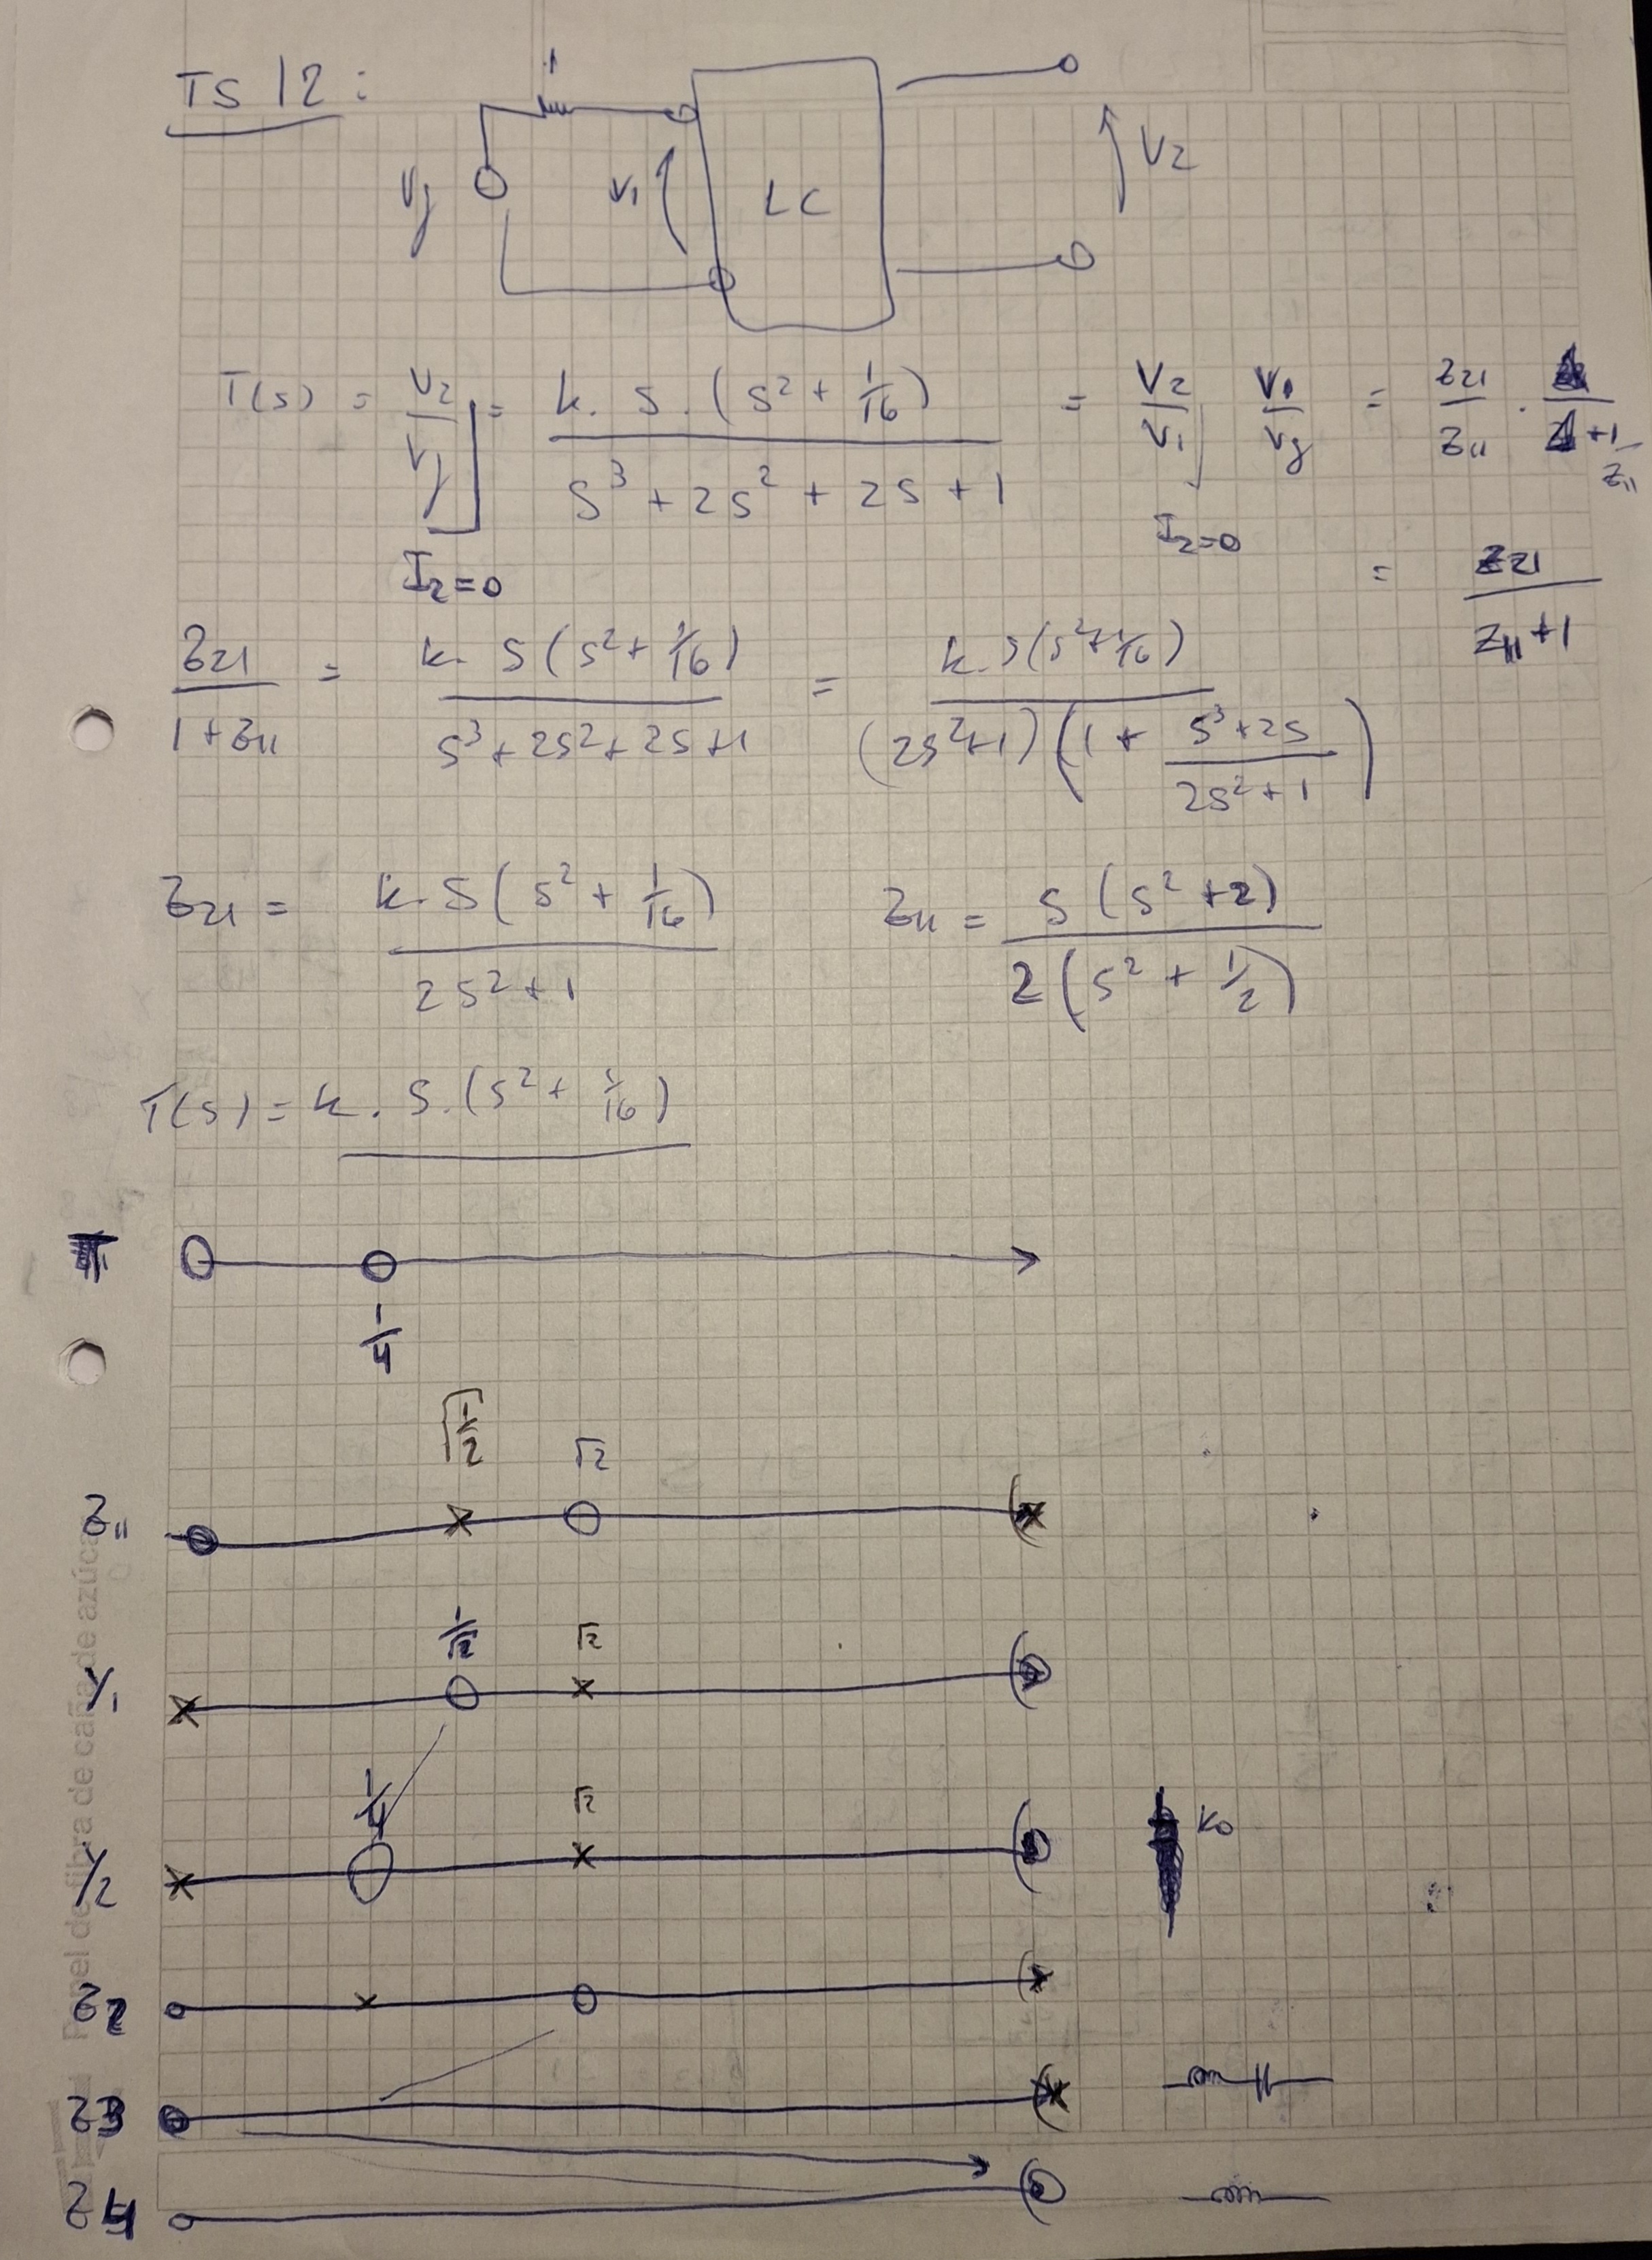 TS 12:
1
Vg V1 LC V2
T(s) = V2/Vg]I2=0 = k. s. (s² + 1/16) / s³ + 2s² + 2s + 1 = V2/V1]I2=0 V1/Vg = Z21/Z11 . 1/1+1/Z11
= Z21/Z11+1
Z21/1+Z11 = k. s(s² + 1/16) / s³+2s²+2s+1 = k.s(s²+1/16) / (2s²+1)(1 + s³+2s/2s²+1)
Z21 = k. s(s² + 1/16) / 2s²+1 Z11 = s(s²+2) / 2(s² + 1/2)
T(s) = k. s.(s² + 1/16)
1/4
√1/2 √2
Z11
1/√2 √2
Y1
1/4 √2
Y2 K0
Z2
Z3
Z4